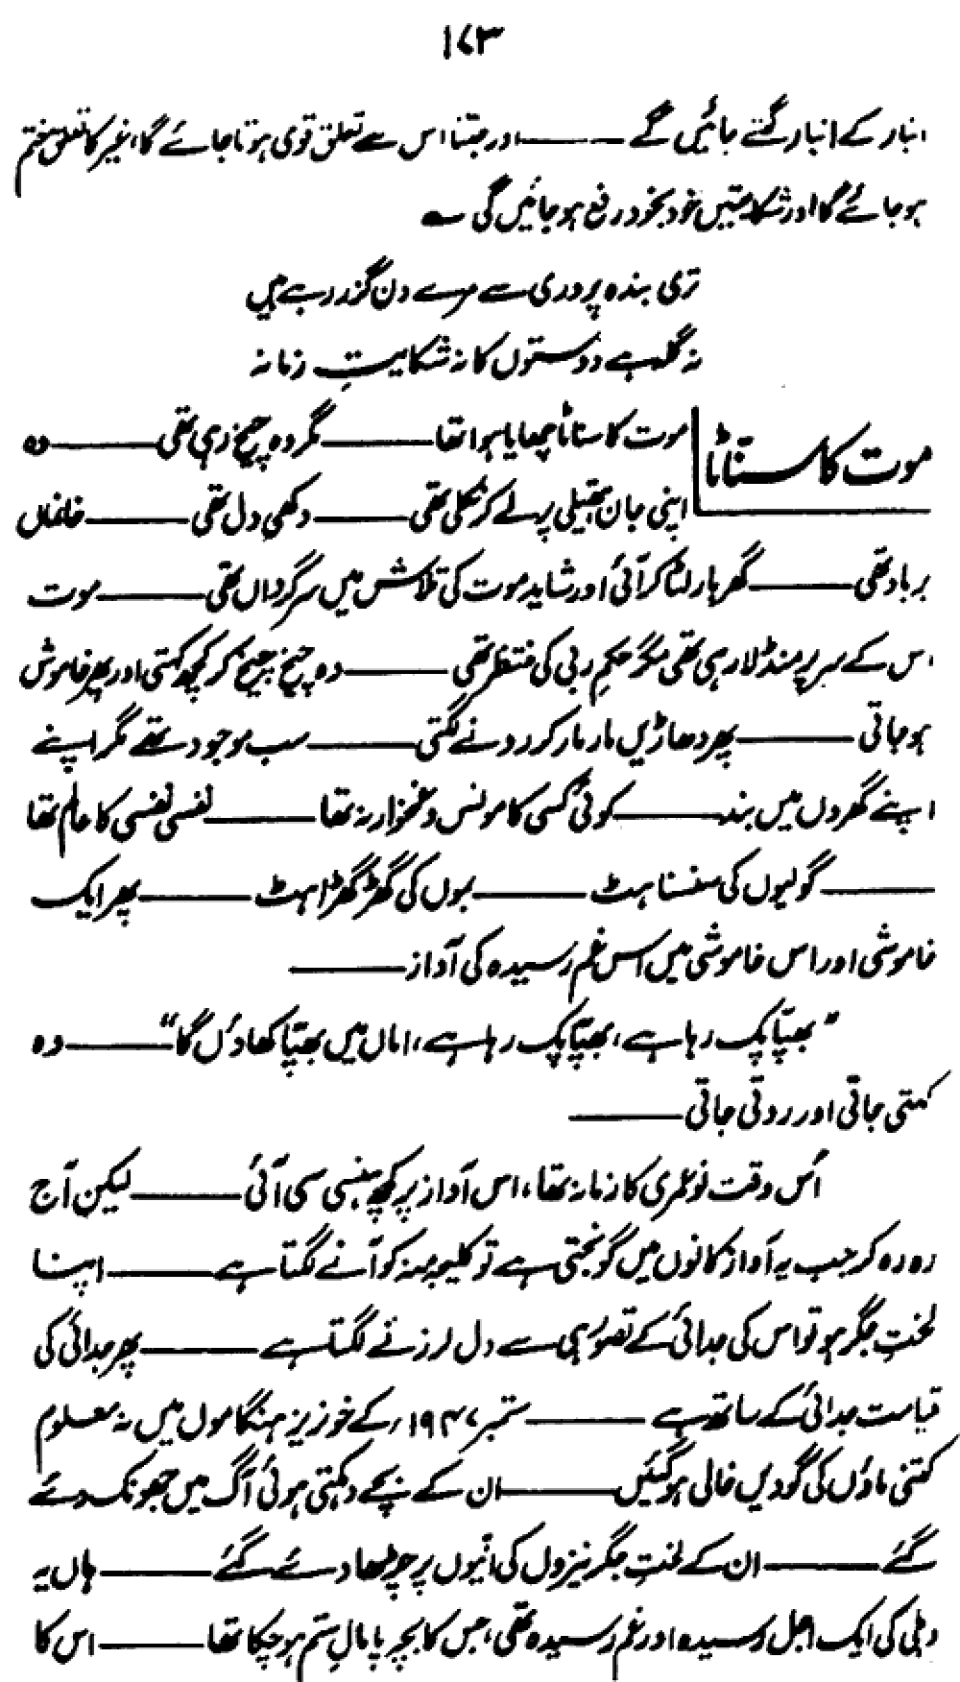 ۱۷۳
انبار کے انبار گنے جائیں گے ——— اور جتنا اس سے تعلق قوی ہوتا جائے گا، غیر کا تعلق ختم
ہو جائے گا اور شکایتیں خود بخود رفع ہو جائیں گی ؎
تری بندہ پروری سے مرے دن گزر رہے ہیں
نہ گلہ ہے دوستوں کا نہ شکایتِ زمانہ
موت کا سناٹا
موت کا سناٹا چھایا ہوا تھا ——— مگر وہ چیخ رہی تھی ——— وہ
اپنی جان ہتھیلی پر لے کر نکلی تھی ——— دکھی دل تھی ——— خانماں
برباد تھی ——— گھر بار لٹا کر آئی اور شاید موت کی تلاش میں سرگرداں تھی ——— موت
اس کے سر پر منڈلا رہی تھی مگر حکمِ ربی کی منتظر تھی ——— وہ چیخ چیخ کر کچھ کہتی اور پھر خاموش
ہو جاتی ——— پھر دھاڑیں مار مار کر رونے لگتی ——— سب موجود تھے مگر اپنے
اپنے گھروں میں بند ——— کوئی کسی کا مونس و غمخوار نہ تھا ——— نفسی نفسی کا عالم تھا
——— گولیوں کی سنسناہٹ ——— بموں کی گھڑگھڑاہٹ ——— پھر ایک
خاموشی اور اس خاموشی میں اس غم رسیدہ کی آواز ———
"بھپّا پک رہا ہے، بھپّا پک رہا ہے، اماں میں بھپّا کھاؤں گا" ——— وہ
کہتی جاتی اور روتی جاتی ———
اُس وقت نوعمری کا زمانہ تھا، اس آواز پر کچھ ہنسی سی آئی ——— لیکن آج
رہ رہ کر جب یہ آواز کانوں میں گونجتی ہے تو کلیجہ منہ کو آنے لگتا ہے ——— اپنا
لختِ جگر ہو تو اس کی جدائی کے تصور ہی سے دل لرزنے لگتا ہے ——— پھر جدائی کی
قیامت جدائی کے ساتھ ہے ——— ستمبر ۱۹۴۷ء کے خوں ریز ہنگاموں میں نہ معلوم
کتنی ماؤں کی گودیں خالی ہو گئیں ——— ان کے بچے دہکتی ہوئی آگ میں جھونک دئے
گئے ——— ان کے لختِ جگر نیزوں کی انّیوں پر چڑھا دئے گئے ——— ہاں یہ
دہلی کی ایک اجل رسیدہ اور غم رسیدہ تھی، جس کا بچہ پامالِ ستم ہو چکا تھا ——— اس کا